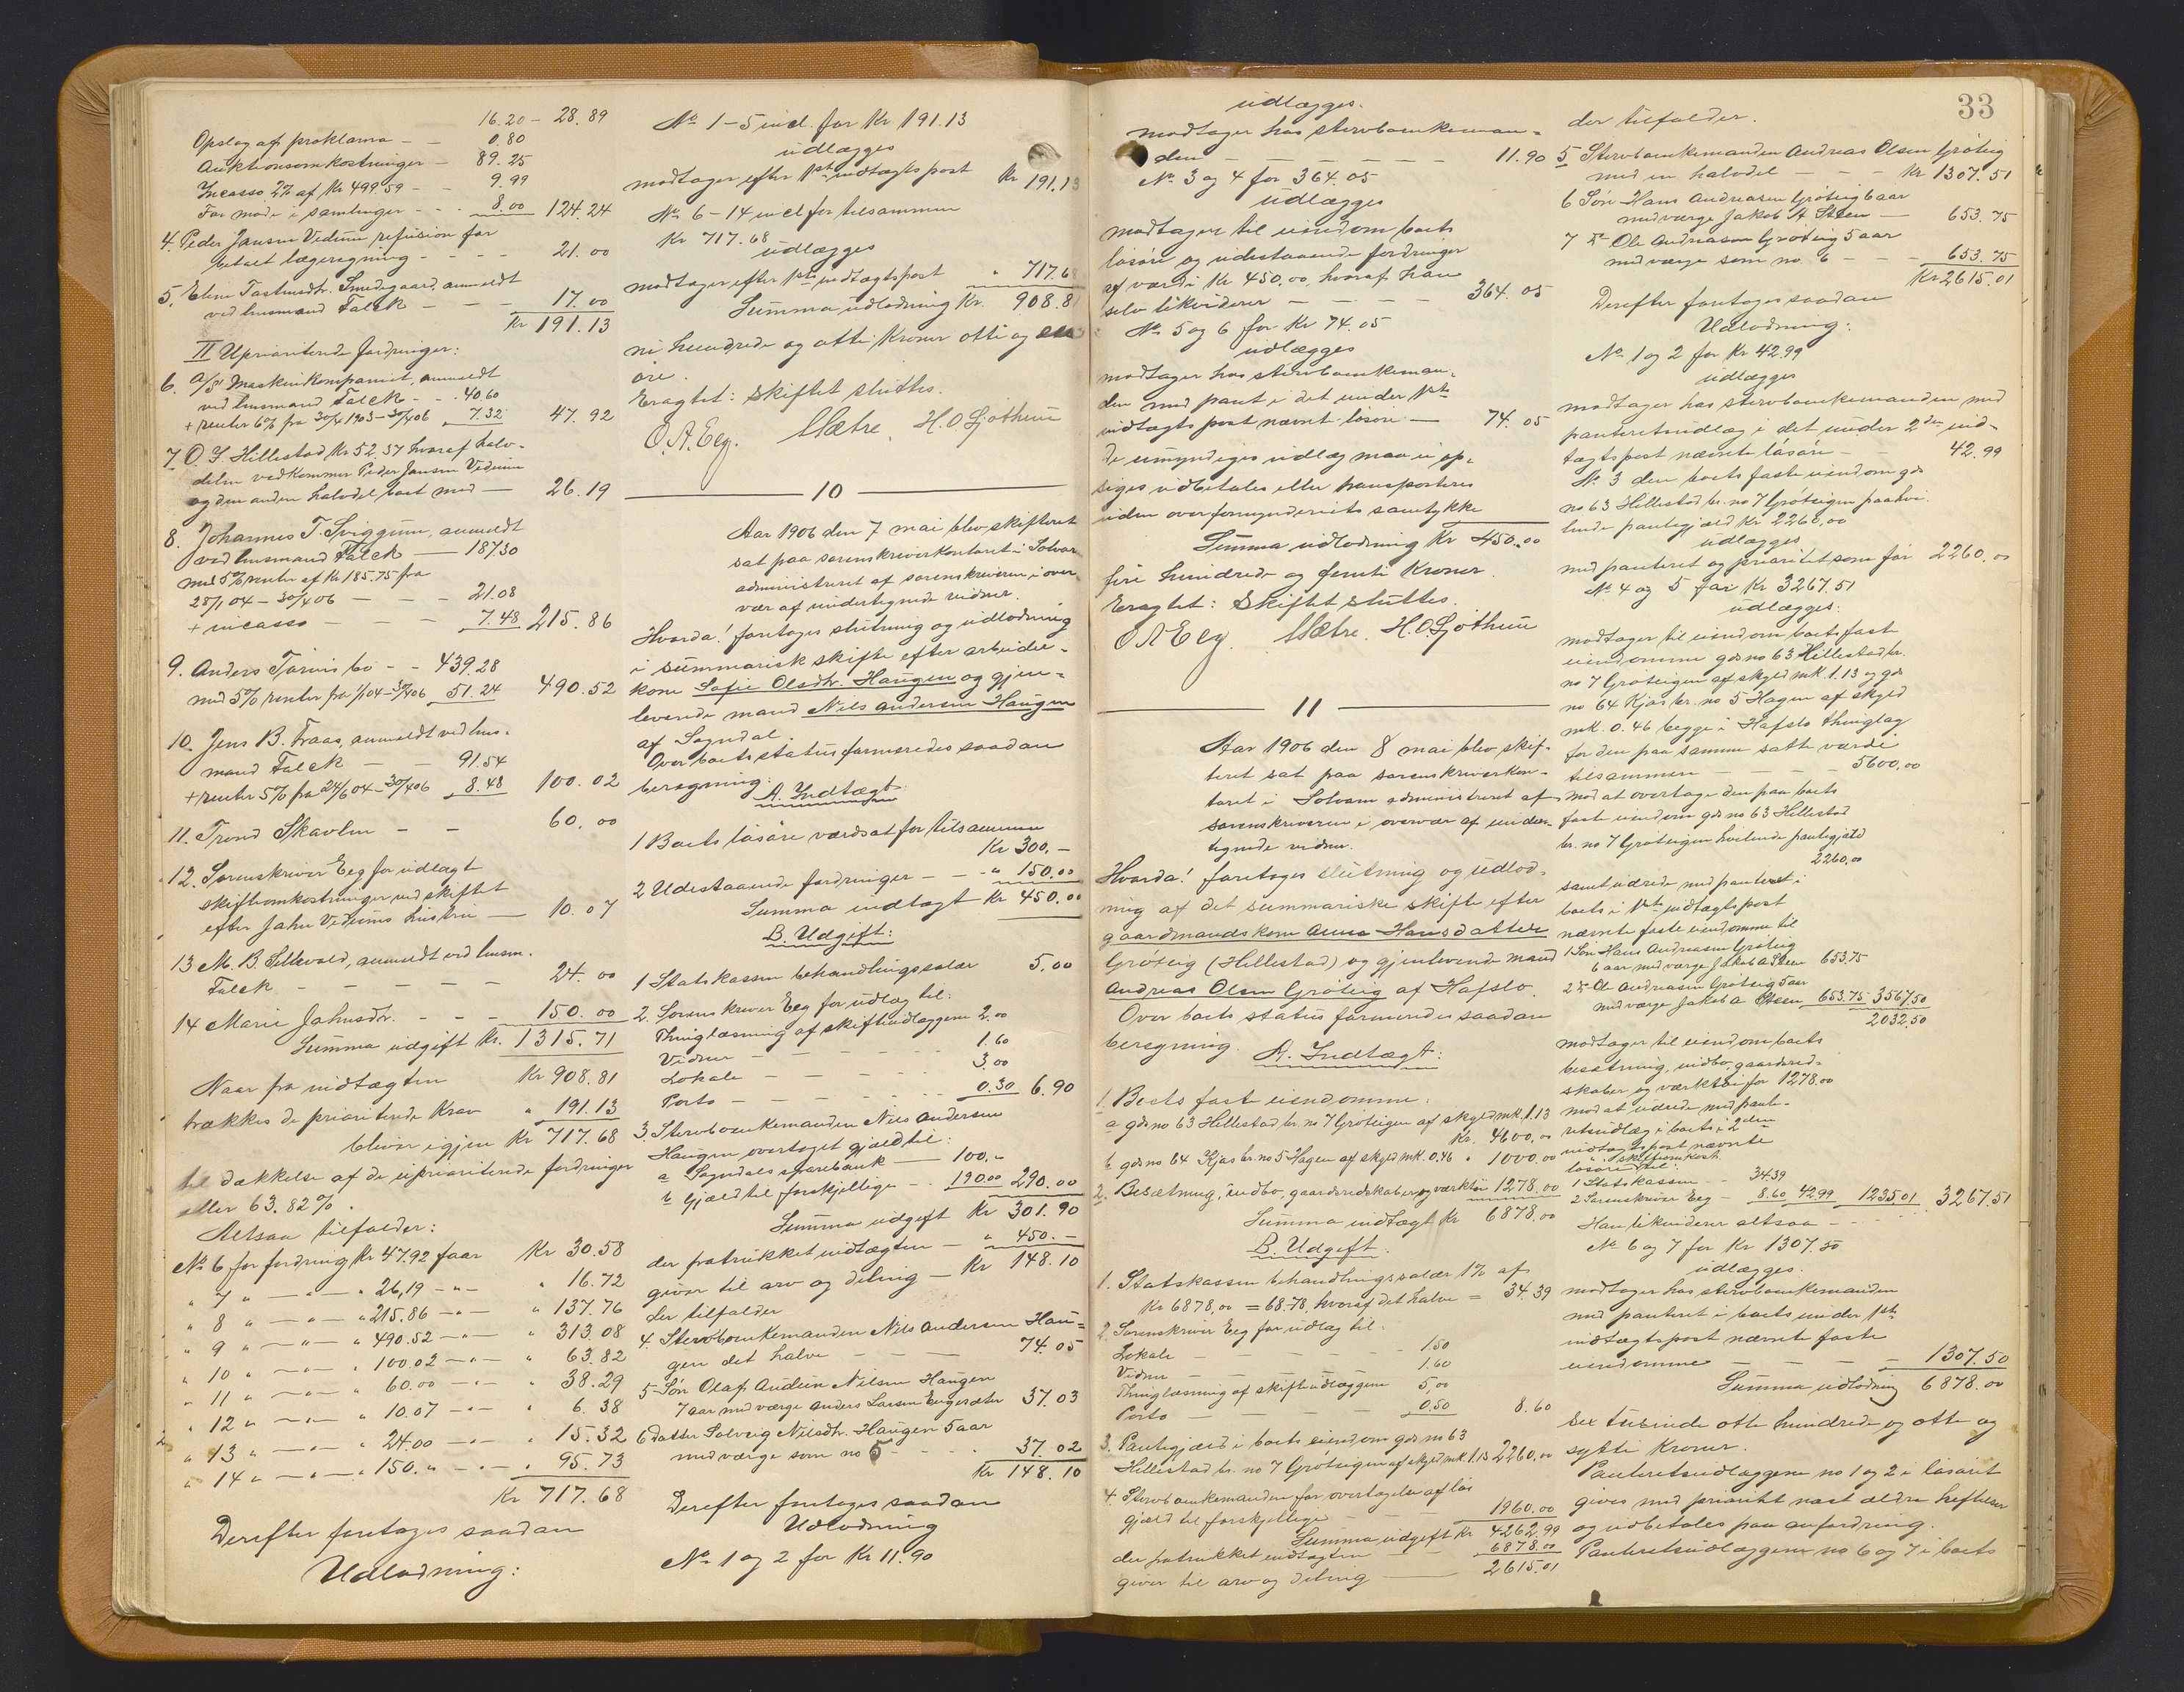 16.20 – 28.89
Opslag af proklama – – 0.80
Auktionsomkostninger – 89.25
Incasso 2% af Kr 499.59 – – 9.99
For møde i samlinger – – 8.00 124.24
4. Peder Jansen Vedum refusion for
betalt lægeregning – – – – 21.00
5. Eline Tostensdtr. Smedegaard, anmeldt
ved lensmand Falck – – – 17.00
Kr 191.13
II Uprioriterede fordringer:
6. A/S Maskinkompaniet, anmeldt
ved lensmand Falck – – 40.60
+ renter 6% fra 30/4 1903 – 30/4 06 7.32 47.92
7. O. J. Hillestad Kr 52.37 hvoraf halv-
delen vedkommer Peder Jansen Vedum
og den anden halvdel boet med – 26.19
8. Johannes T. Sviggum, anmeldt
ved lensmand Falck – 187.30
med 5% renter af Kr 185.75 fra
28/1 04 – 30/4 06 – – – 21.08
+ incasso – – – 7.48 215.86
9. Anders Tørvis bo – – 439.28
med 5% renter fra 1/1 04 – 30/4 06 51.24 490.52
10. Jens B. Fraas, anmeldt ved lens-
mand Falck – – 91.54
+ renter 5% fra 24/6 04 – 30/4 06 8.48 100.02
11. Trond Skavlen – – 60.00
12. Sorenskriver Eeg for udlagt
skifteomkostninger ved skiftet
efter Jahn Vedums hustru – 10.07
13 M. B. Selseвold, anmeldt ved lensm.
Falck – – – – – 24.00
14 Marie Jahnsdtr. – – – 150.00
Summa udgift Kr. 1315.71
Naar fra indtægten Kr 908.81
trækkes de prioriterede Krav " 191.13
bliver igjen Kr 717.68
til dækkelse af de uprioriterede fordringer
eller 63.82%.
Altsaa tilfalder:
No 6 for fordring Kr 47.92 faar Kr 30.58
" 7 " — " — " 26,19 — " — " 16.72
" 8 " — " — " 215.86 — " — " 137.76
" 9 " — " — " 490.52 — " — " 313.08
" 10 " — " — " 100.02 — " — " 63.82
" 11 " — " — " 60.00 — " — " 38.29
" 12 " — " — " 10.07 — " — " 6.38
" 13 " — " — " 24.00 — " — " 15.32
" 14 " — " — " 150. " — " — " 95.73
Kr 717.68
Derefter foretoges saadan
Udlodning:
No 1–5 incl. for Kr 191.13
udlægges
modtager efter 1ste indtægtspost Kr 191.13
No 6–14 incl for tilsammen
Kr 717.68
udlægges
modtager efter 1ste indtægtspost " 717.6
Summa udlodning Kr. 908.8
ni hundrede og otte Kroner otti og en
øre.
Eragtet: Skiftet sluttes.
O. A. Eeg. Sætre H. O Ljøthun
10
Aar 1906 den 7 mai blev skifteret
sat paa sorenskriverkontoret i Solvor
administreret af sorenskriveren i over
vær af undertegnede vidner.
Hvorda! foretoges slutning og udlodning
i summarisk skifte efter arbeider-
kone Sofie Olsdtr. Haugen og gjen-
levende mand Nils Andersen Haugen
af Sogndal.
Over boets status formeredes saadan
beregning:
A. Indtægt
1 Boets løsøre værdsat for tilsammen
Kr 300. –
2 Udestaaende fordringer – – " 150.00
Summa indtægt Kr 450.00
B. Udgift:
1 Statskassen behandlingssalær 5,00
2. Sorenskriver Eeg for udlæg til:
Thinglæsning af skifteudlæggene 2.00
Vidner – – – – – 1.60
Lokale – – – – 3.00
Porto – – – – 0.30 6.90
3. Stervboenkemanden Nils Andersen
Haugen overtaget gjæld til:
a Sogndals sparebank – 100. "
b Gjæld til forskjellige – – 190.00 290.00
Summa udgift Kr 301.90
der fratrukket indtægten – " 450. –
giver til arv og deling – Kr 148.10
der tilfalder
4. Stervboenkemanden Nils Andersen Hau-
gen det halve – – – 74.05
5 Søn Olaf Audun Nilsen Haugen
7 aar med værge Anders Larsen Eggesæter 37.03
6 Datter Solveig Nilsdtr. Haugen 5 aar
med værge som no 5 – – – 37.02
Kr 148.10
Derefter foretoges saadan
Udlodning
No 1 og 2 for Kr 11.90
33
udlægges.
modtager hos stervboenkeman-
den – – – – – – 11.90
No 3 og 4 for 364.05
udlægges
modtager til eiendom boets
løsøre og udestaaende fordringer
af værdi Kr 450.00 hvoraf han
selv likviderer – – – – 364.05
No 5 og 6 for Kr 74.05
udlægges
modtager hos stervboenkeman-
den med pant i det under 1ste
indtægtspost nævnte løsøre – 74.05
De umyndiges udlæg maa ei op-
siges udbetales eller transporteres
uden overformynderiets samtykke
Summa udlodning Kr 450.00
fire hundrede og femti Kroner.
Eragtet: Skiftet sluttes.
O A Eeg. Sætre. H. O Ljøthun
11
Aar 1906 den 8 mai blev skif-
teret sat paa sorenskriverkon-
toret i Solvorn administreret af
sorenskriveren i overvær af under-
tegnede vidner.
Hvorda! foretoges slutning og udlod-
ning af det summariske skifte efter
gaardmandskone Anna Hansdatter
Grøteig (Hillestad) og gjenlevende mand
Andreas Olsen Grøteig af Hafslo.
Over boets status formeredes saadan
beregning. A. Indtægt:
1. Boets faste eiendomme:
a gds no 63 Hillestad br. no 7 Grøteigen af skyld mk. 1.13
Kr. 4600,00
b gds no 64 Kjøs br. no 5 Hagen af skyld mk. 0.46 " 1000.00
2. Besætning, indbo, gaardsredskaber og værktøi 1278.00
Summa indtægt Kr 6878.00
B. Udgift:
1. Statskassen behandlingssalær 1% af
Kr 6878,00 = 68.78, hvoraf det halve = 34.39
2. Sorenskriver Eeg for udlæg til:
Lokale – – – – – 1.50
Vidner – – – – 1.60
Thinglæsning af skifteudlæggene 5,00
Porto – – – 0.50 8.60
3. Pantegjæld i boets eiendom gds no 63
Hillestad br. no 7 Grøteigen af skyld mk 1.13 2260,00
4. Stervboenkemanden for overtagelse af løs
gjæld til forskjellige – – – 1960.00
Summa udgift Kr 4262.99
der fratrukket indtægten – 6878.00
giver til arv og deling – 2615.01
der tilfalder.
5 Stervboenkemanden Andreas Olsen Grøteig
med en halvdel – – – Kr 1307.51
6 Søn Hans Andreasen Grøteig 6 aar
med værge Jakob A Steen – 653.75
7 do Ole Andreasen Grøteig 5 aar
med værge som no. 6 – – – 653.75
Kr 2615.01
Derefter foretoges saadan
Udlodning:
No 1 og 2 for Kr 42.99
udlægges
modtager hos stervboenkemanden med
panteretsudlæg i det under 2den ind-
tægtspost nævnte løsøre – – 42.99
No 3 den boets faste eiendom gds
no 63 Hillestad br. no 7 Grøteigen paahvi-
lende pantegjæld Kr 2260,00
udlægges
med panteret og prioritet som før 2260.00
No 4 og 5 for Kr 3267.51
udlægges:
modtager til eiendom boets faste
eiendomme gds no 63 Hillestad br.
no 7 Grøteigen af skyld mk. 1.13 og gds
no 64 Kjøs br. no 5 Hagen af skyld
mk. 0.46 begge i Hafslo thinglag
for den paa samme satte værdi
tilsammen – – – – 5600,00
mod at overtage den paa boets
faste eiendom gds no 63 Hillestad
br. no 7 Grøteigen hvilende pantegjæld
2260,00
samt udrede med panteret i
boets i 1ste indtægtspost
nævnte faste eiendomme til
1 Søn Hans Andreasen Grøteig
6 aar med værge Jakob A Steen 653.75
2 do Ole Andreasen Grøteig 5 aar
med værge Jakob A Steen 653.75 3567,50
2032,50
modtager til eiendom boets
besætning, indbo, gaardsred-
skaber og værktøi for 1278.00
mod at udrede med pante-
retsudlæg i boets i 2den
indtægtspost nævnte
løsøre til: skifteomkost.
1 Statskassen – 34.39
2 Sorenskriver Eeg – 8.60 42.99 1235,01 3267.51
Han likviderer altsaa – – – –
No 6 og 7 for Kr 1307.50
udlægges.
modtager hos stervboenkemanden
med panteret i boets under 1ste
indtægtspost nævnte faste
eiendomme – – – – 1307.50
Summa udlodning 6878.00
sex tusinde otte hundrede og otte og
sytti Kroner.
Panteretsudlæggene no 1 og 2 i løsøret
gives med prioritet næst ældre heftelser
og udbetales paa anfordring.
Panteretsudlæggene no 6 og 7 i boets